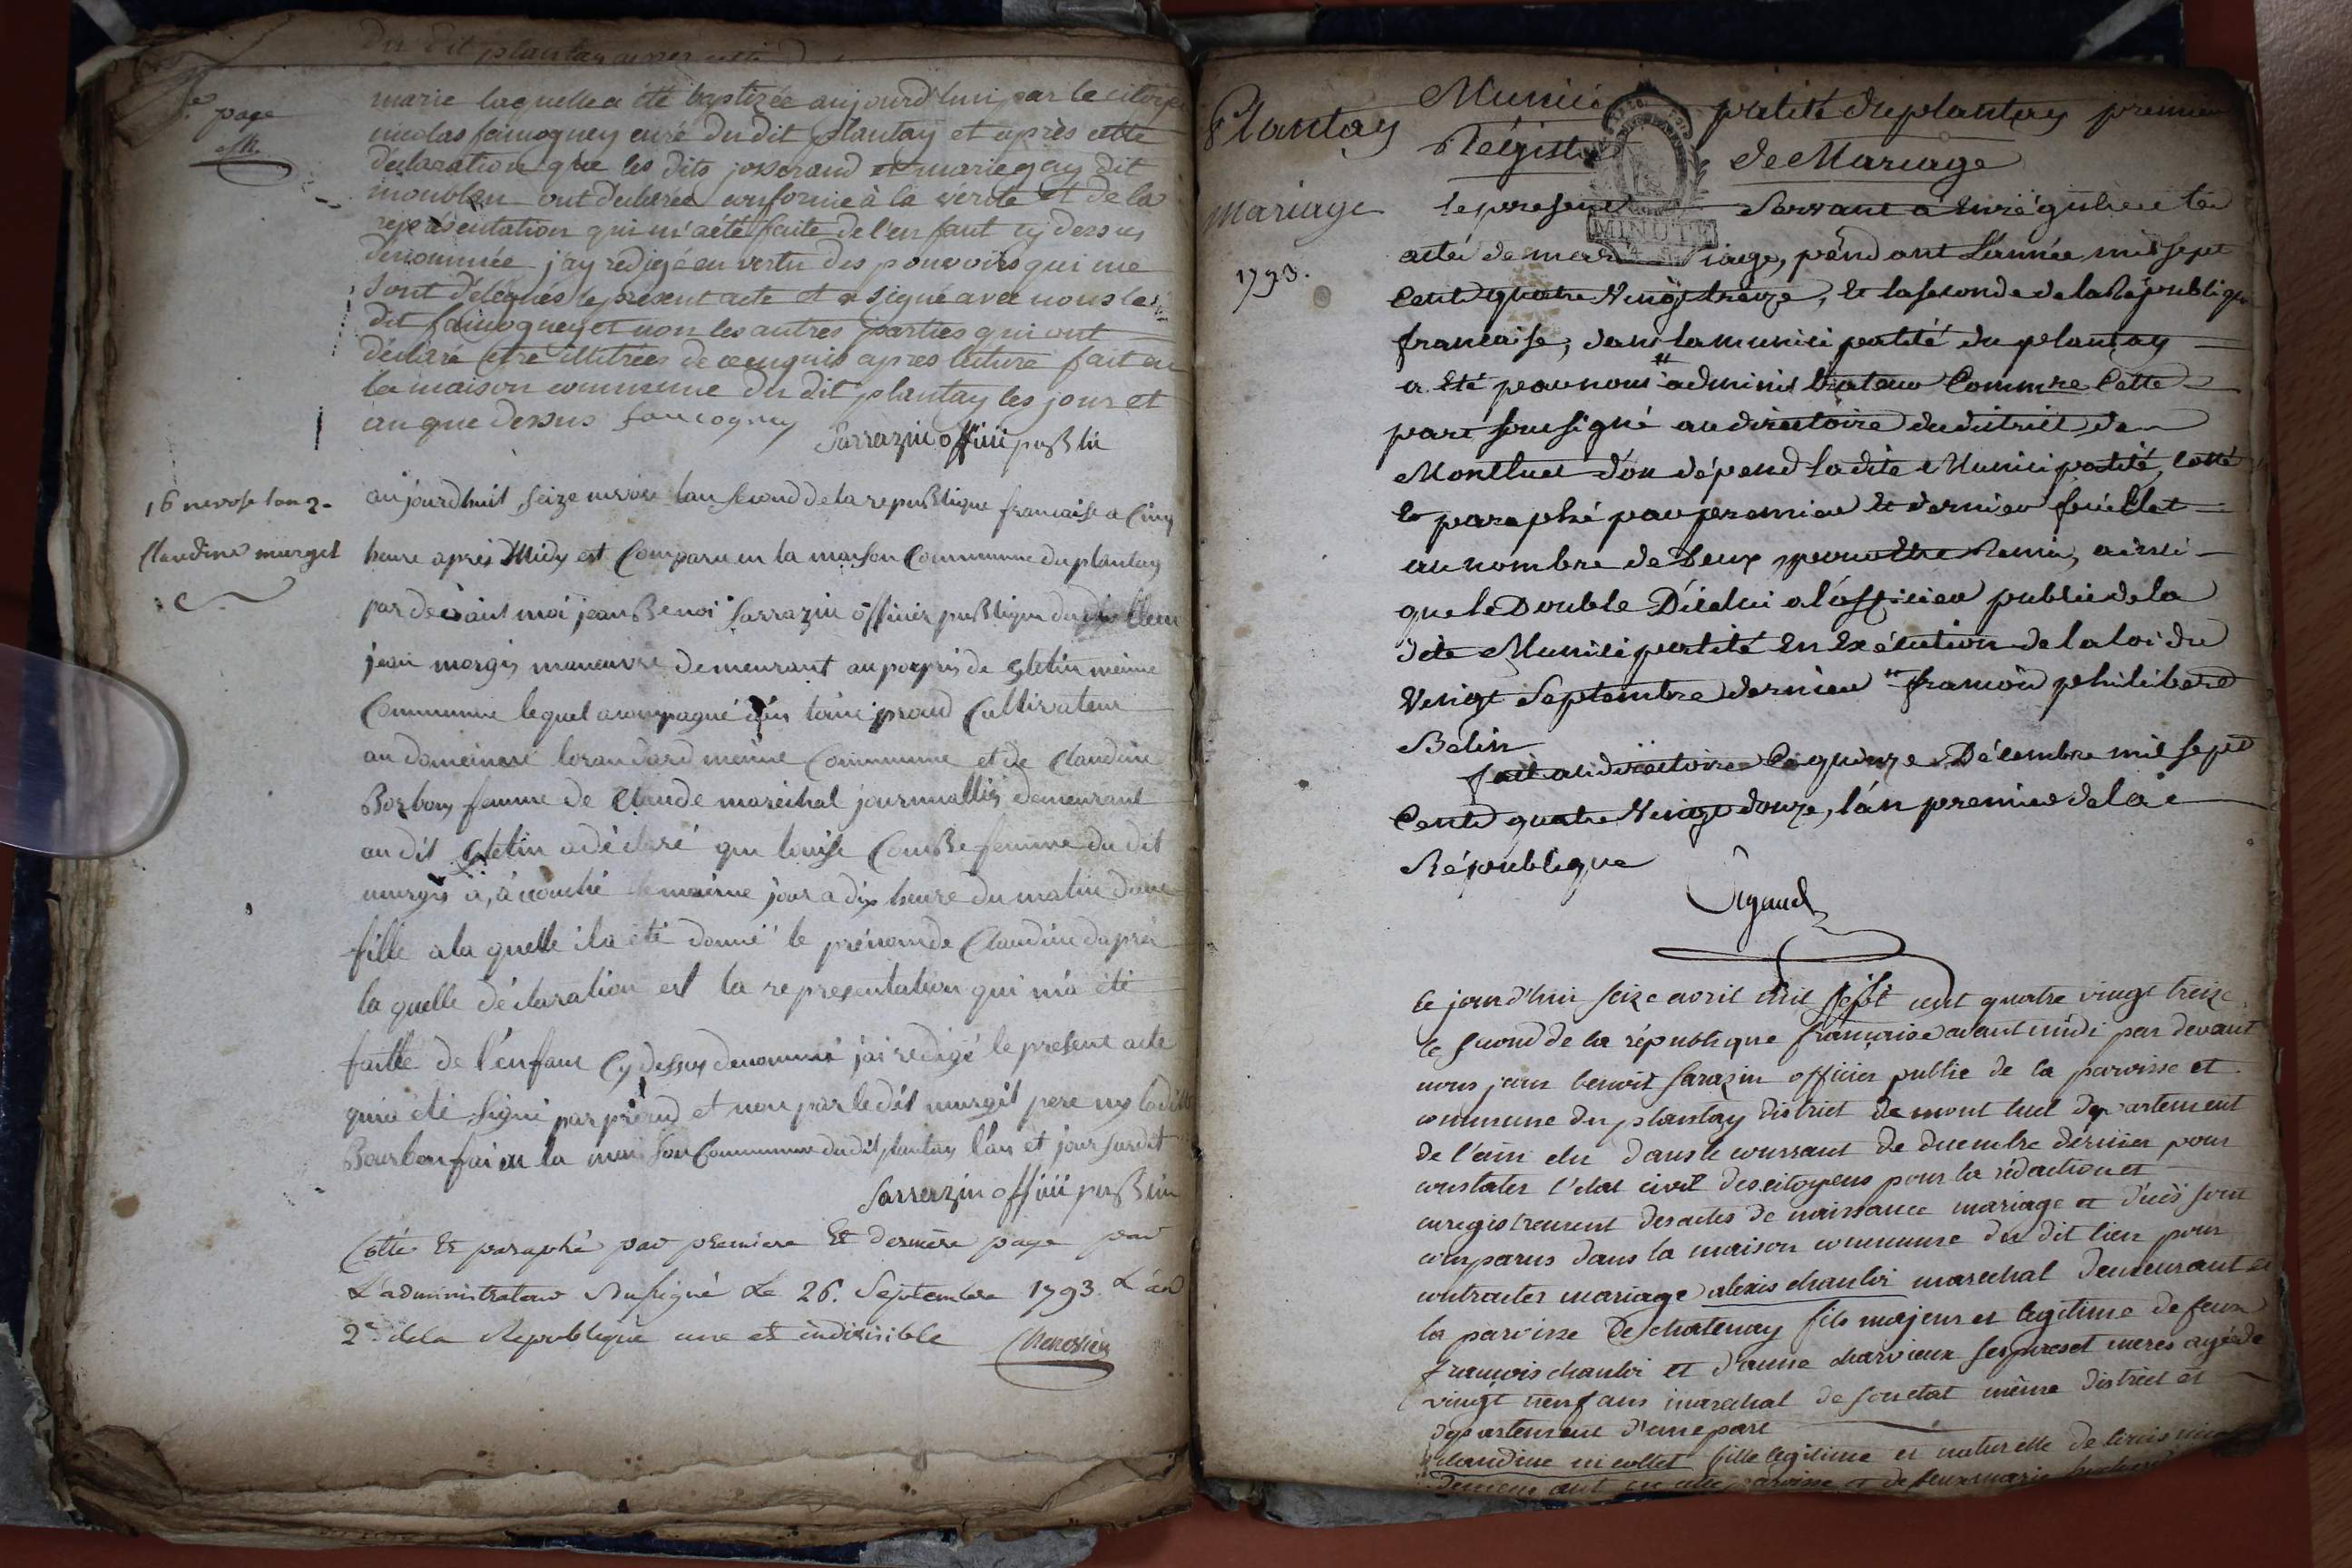 page
marie laquelle a été baptizée aujourd'hui par le citoyen
nicolas faucogney curé du dit plantay et après cette
déclaration que les dits josserand et marie gay dit
ont declarée conforme à la vérité et de la
représentation qui m'a été faite de l'enfant cy dessus
dénommée j'ay redigé en vertu des pouvoirs qui me
sont délégués le présent acte et a signé avec nous le
dit faucogney et non les autres parties qui ont
déclaré être illitrées de ce enquis après lecture fait en
la maison commune du dit plantay les jour et
an que dessus faucogney
Sarrazin offici publin
16 nevose lan 2
Claudine murgit
aujourdhuit seize nevose lan second de la republique francaise a Cinq
heure après Midy est Comparu en la maison Commune du plantay
par devant moi jean Benoi Sarrazin officier publique du dit lieu
jean morgis maneuvre demeurant au porpris de gletin méme
Commune lequel acompagné proud Cultivateur
au domaine même Commune et de Claudine
Borbon femme de Claude maréchal journallier demeurant
au dit gletin a déclaré que louise femme du dit
murgis a, acouché le mainme jour a dix heure du matin dune
fille a la quelle il a été donné le prénom de Claudine daprès
la quelle déclaration est la representation qui m'a été
faitte de l'énfant Cy dessus denommé j'ai redigé le present acte
qui a été signé par proud et non par le dit murgit pere ny la ditte
Bourbon fai en la maison Commune du dit plantay l'an et jour susdit
Sarrazin offici publin
Cotté Et paraphé par premiere Et derniere page par
L'administrateur Susigné Le 26. Septembre 1793. L'an
2e de la Republique une et indivisible
Plantay
Munici palité du plantay premier
Régistre de Mariage
mariage
1793.
le present Servant a Enrégistrer les
actes de mariage, pendant L'année mil sept
Cents quatre Vingt treize, et la seconde de la République
francaise, dans la municipalité du plantay
a Eté par nous administrateur Comme Cette
part soussigné au directoire du district de
Montluel d'ou dépend la dite Municipalité, cotté
et paraphé par premier et dernier feuillet
au nombre de Deux pour être Remis, ainsi
que le Double D'icelui a l'officier public de la
dite Municipalité En Exécution de la loi du
Vingt Septembre dernier francois philibert
Belin
fait au directoire Ce quinze Décembre mil sept
Cents quatre Vingt douze, l'an premier de la
République
le jourd'hui seize avril mil sept cent quatre vingt treize
le second de la république françoise avant midi par devant
nous jean benoit Sarazin officier public de la paroisse et
commune du plantay district de mont luel departement
de l'ain élu dans le courrant de decembre dérnier pour
constater l'etat civil des citoyens pour la rédaction et
enregistrement des actes de naissance mariage et décès sont
comparus dans la maison commune du dit lieu pour
contracter mariage alexis chanloi marechal demeurant en
la paroisse de chatenay fils majeur et legitime de feux
francois chanloi et d'anne charvieux ses pere et meres agé de
vingt neuf ans marechal de son etat même district et
departement d'une part
claudine fille legitime et naturelle de
demeurant en cette paroisse et de feux marie